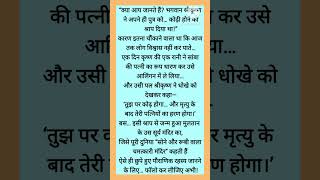 "क्या आप जानते हैं? भगवान श्रीकृष्ण
ने अपने ही पुत्र को... कोढ़ी होने का
श्राप दिया था!"
कारण इतना चौंकाने वाला था कि आज
तक लोग विश्वास नहीं कर पाते...
एक दिन कृष्ण की एक रानी ने सांबा
की पत्नी का रूप धारण कर उसे
आलिंगन में ले लिया...
और उसी पल श्रीकृष्ण ने धोखे को
देखकर कहा–
'तुझ पर कोढ़ होगा... और मृत्यु के
बाद तेरी पत्नियों का हरण होगा।'
बस... इसी श्राप से जन्म हुआ मुलतान
के उस सूर्य मंदिर का,
जिसे पूरी दुनिया "सोने और रूबी वाला
चमत्कारी मंदिर" कहती है
ऐसे ही छुपे हुए पौराणिक रहस्य जानने
के लिए... फॉलो कर लीजिए अभी!